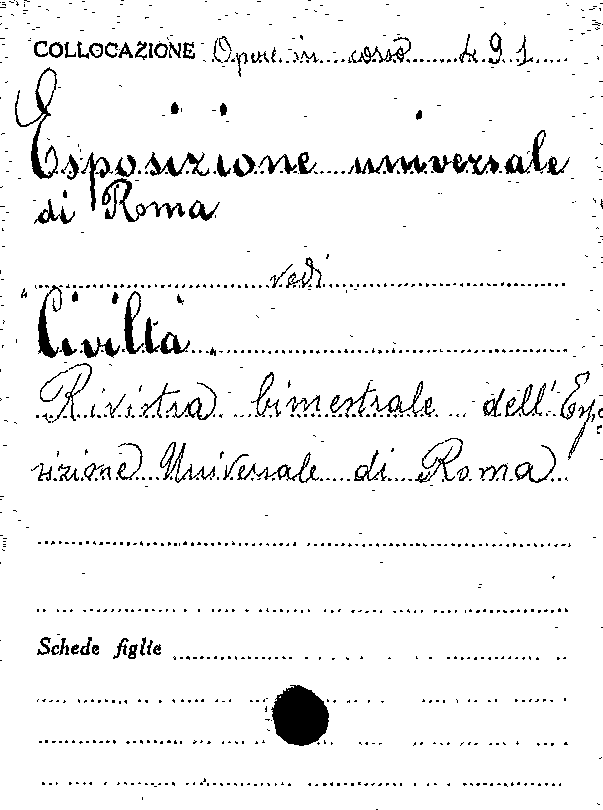 COLLOCAZIONE Opere in corso 491
Esposizione universale
di Roma
vedi
"Civiltà.
Rivista bimestrale dell'Espo
sizione Universale di Roma
Schede figlie